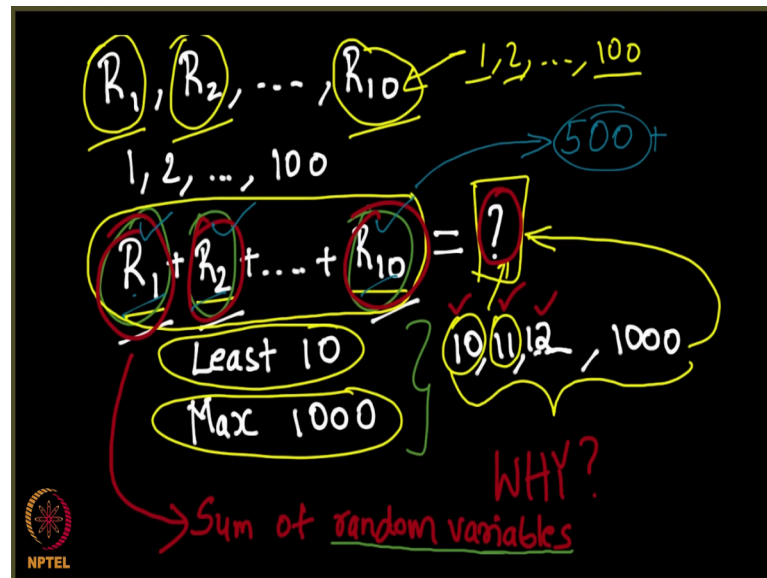 R₁, R₂, ..., R₁₀ 1, 2, ..., 100
1, 2, ..., 100 500+
R₁ + R₂ + .... + R₁₀ = ?
Least 10 10, 11, 12 , 1000
Max 1000
WHY?
Sum of random variables
NPTEL